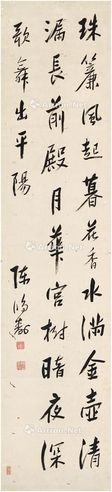 珠簾風起暮花香水滿金壺清
漏長前殿月華宮樹暗夜深
歌舞出平陽
陳鴻壽